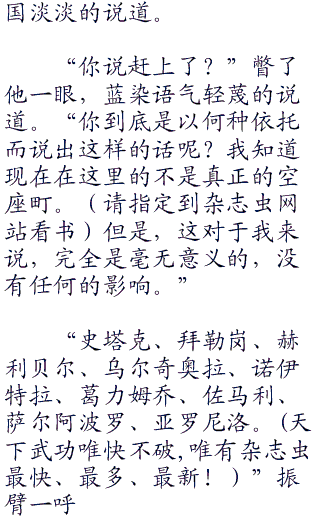 国淡淡的说道。
“你说赶上了？”瞥了
他一眼，蓝染语气轻蔑的说
道。“你到底是以何种依托
而说出这样的话呢？我知道
现在在这里的不是真正的空
座町。（请指定到杂志虫网
站看书）但是，这对于我来
说，完全是毫无意义的，没
有任何的影响。”
“史塔克、拜勒岗、赫
利贝尔、乌尔奇奥拉、诺伊
特拉、葛力姆乔、佐马利、
萨尔阿波罗、亚罗尼洛。(天
下武功唯快不破,唯有杂志虫
最快、最多、最新！）”振
臂一呼